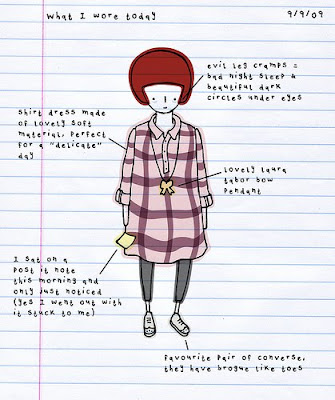 What I wore today
9/9/09
evil leg cramps =
bad night sleep &
beautiful dark
circles under eyes
shirt dress made
of lovely soft
material, perfect
for a "delicate"
day
lovely laura
tabor bow
pendant
I sat on a
post it note
this morning and
only just noticed
(yes I went out with
it stuck to me)
favourite pair of converse,
they have brogue like toes